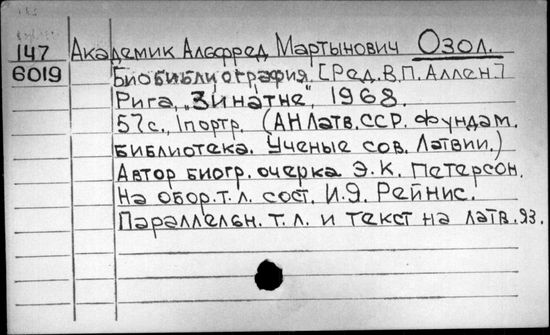 147 Академик Альфред Мартынович Озол.
6019 Биобиблиография. [Ред. В.П. Аллен]
Рига, „Зинатне", 1968.
57 с., 1 портр. (АН Латв. ССР. Фундам.
библиотека. Ученые сов. Латвии.)
Автор биогр. очерка Э.К. Петерсон.
На обор. т.л. сост. И.Я. Рейнис.
Параллельн. т.л. и текст на латв. яз.